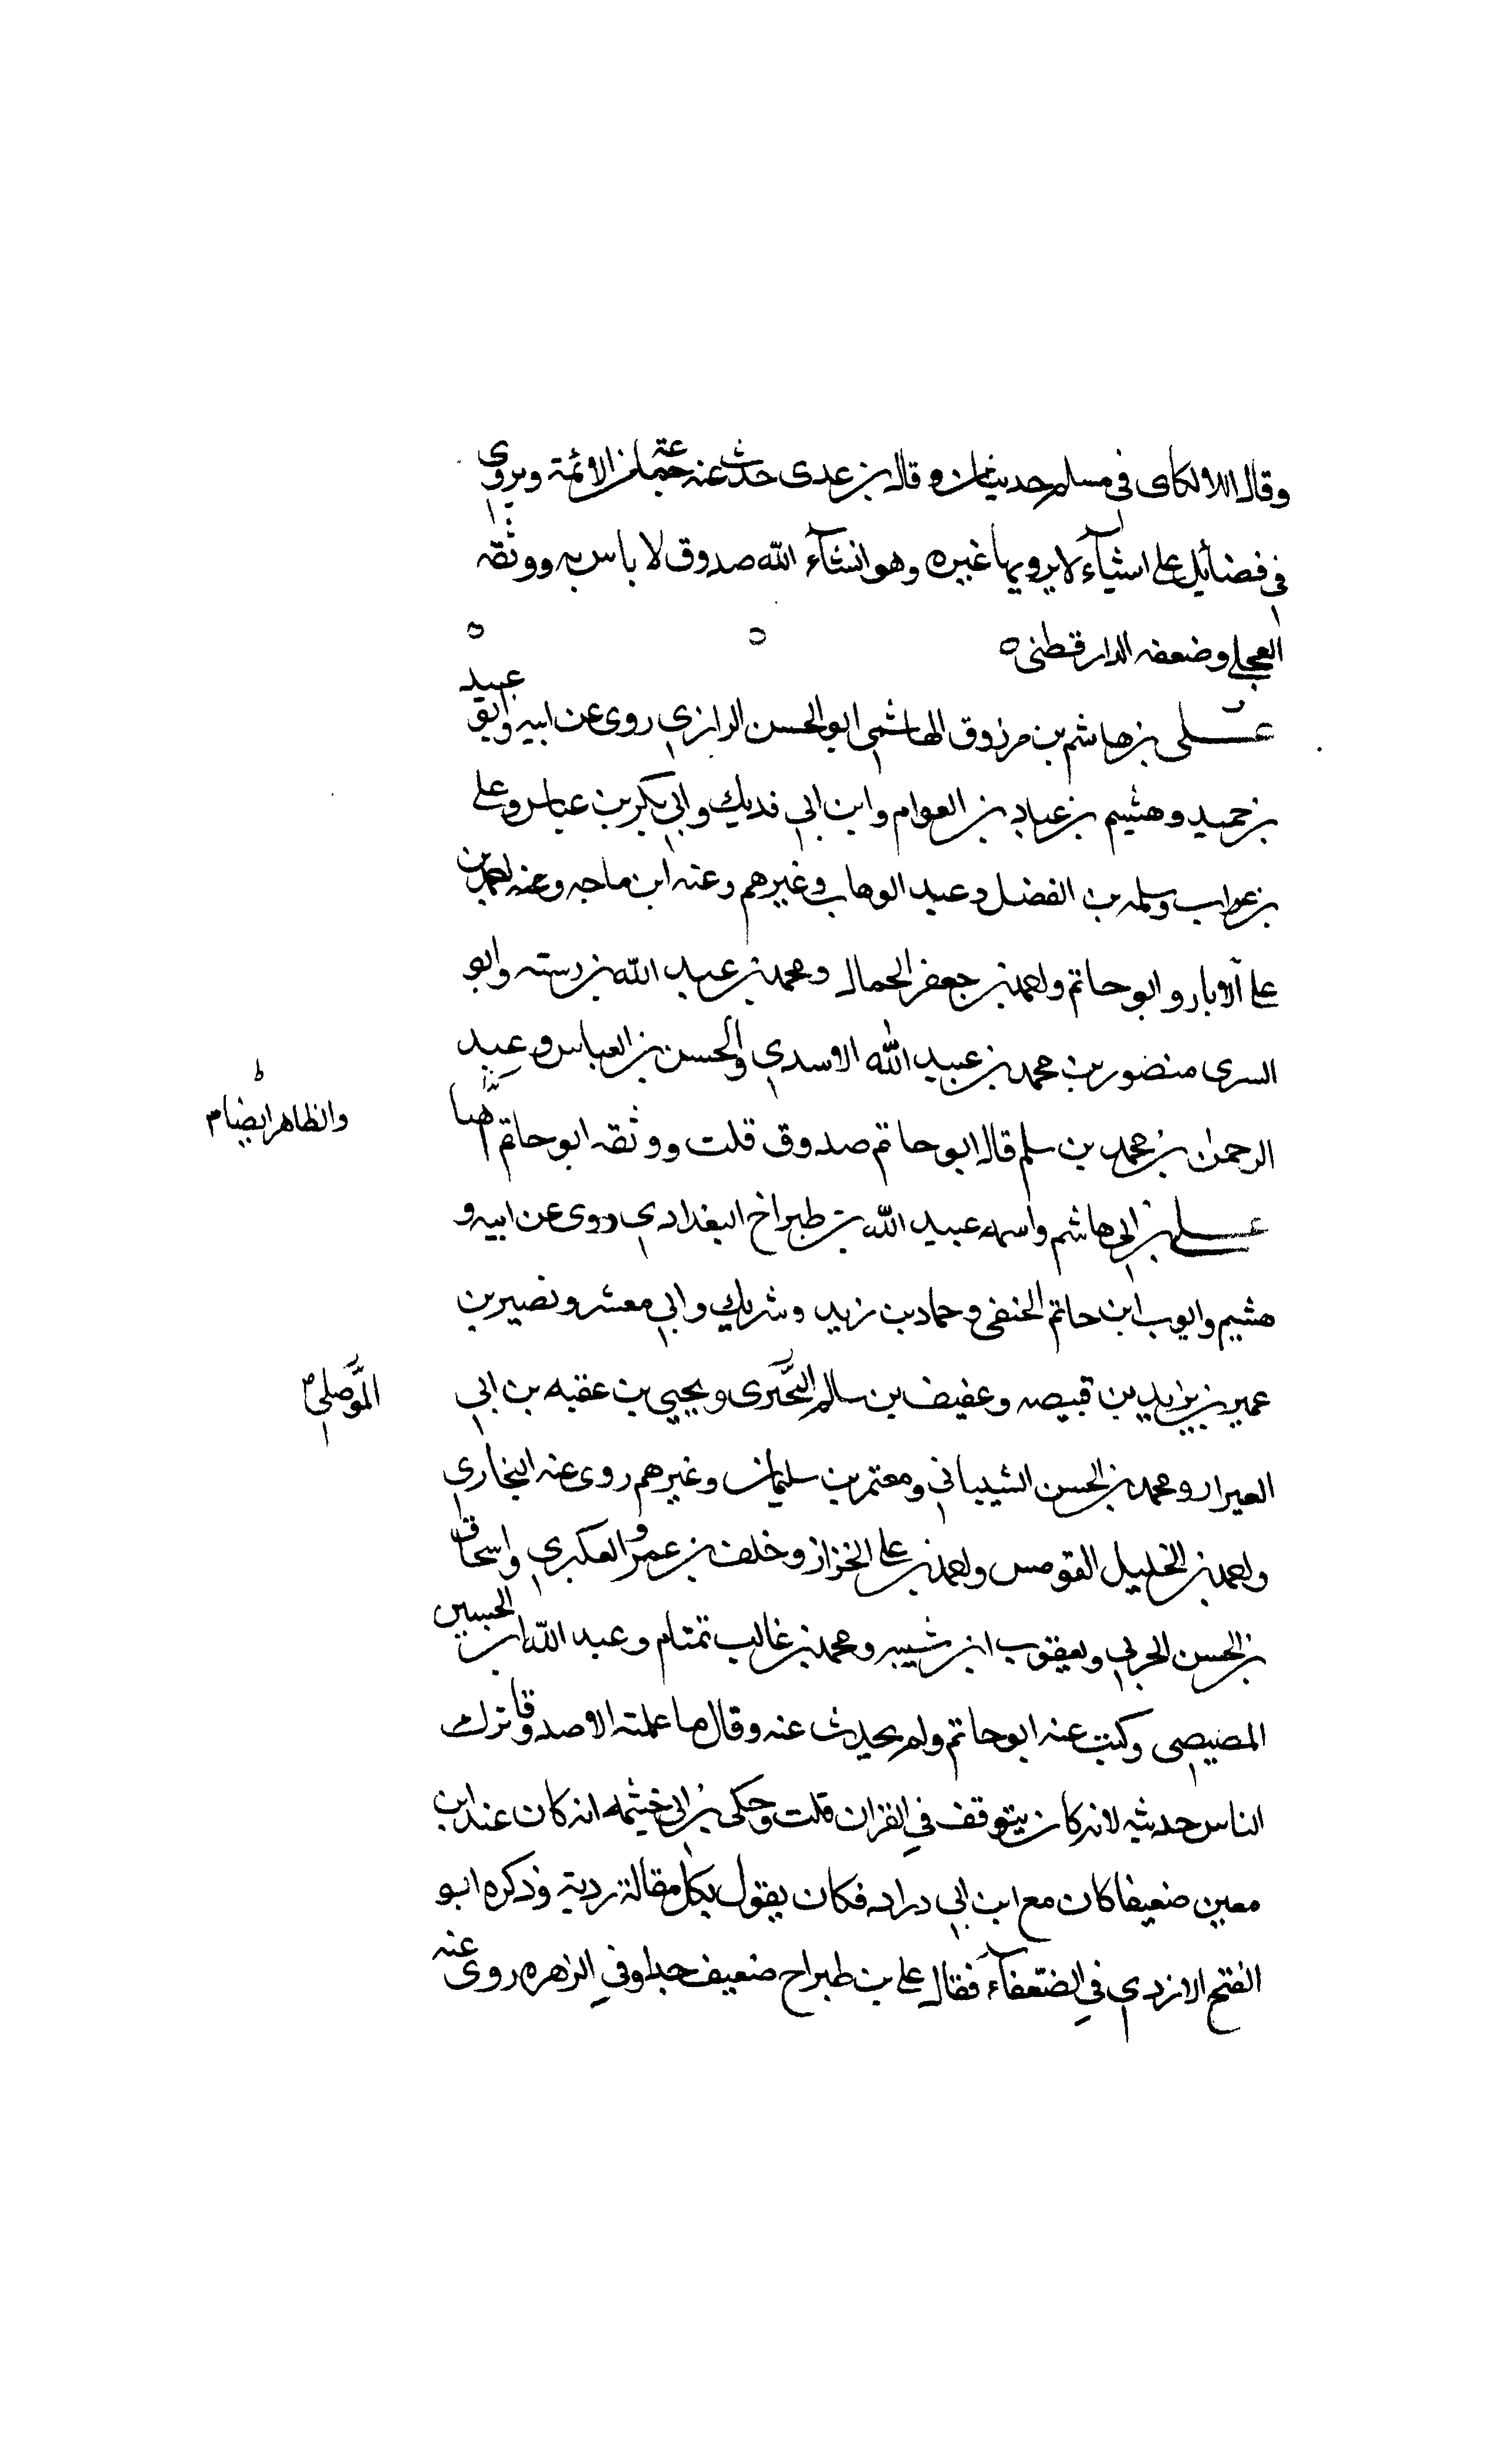 وقال اللالكاى فى مسلم حديثان وقال بن عدى حدث عنه جماعة من الائمة ويروى
فى فضائل على اشيآء لا يرويها غيره وهو انشآء الله صدوق لا باس به ووثقه
العجلى وضعفه الدارقطنى ه
علـى بن هاشم بن مرزوق الهاشمى ابو الحسن الرازى روى عن ابيه وابو عبيد
بن حميد وهشيم بن عباد بن العوام وابن ابى فديك وابى بكر بن عياش وعلى
بن غراب وسلمه بن الفضل وعبد الوهاب وغيرهم وعنه ابن ماجه وعنه احمد بن
على الابار وابو حاتم واحمد بن جعفر الجمال ومحمد بن عبد الله بن رسته وابو
السرى منصور بن محمد بن عبيد الله الاسدى والحسن بن العباس وعبد
الرحمن بن محمد بن سلم قال ابو حاتم صدوق قلت ووثقه ابو حاتم
والظاهر ايضا م
علـى بن ابى هاشم واسمه عبيد الله بن طبراخ البغدادى روى عن ابيه و
هشيم وايوب ابن حاتم الحنفى وحماد بن زيد وشريك وابى معشر ونصير بن
عمير بن يزيد بن قبيصه وعفيف بن سالم ويحيى بن عقبه بن ابى
الموصلى م
العيرار ومحمد بن الحسن الشيبانى ومعتمر بن سليمان وغيرهم روى عنه البخارى
واحمد بن الخليل القومس واحمد بن على الخزاز وخلف بن عمرو العكبرى واسحاق
بن الحسن الحربى ويعقوب ابن شيبه ومحمد بن غالب تمتام وعبد الله ابن الحسين
المصيصى وكتب عنه ابو حاتم ولم يحدث عنه وقال ما علمته الا صدوقا ترك
الناس حديثه لانه كان يتوقف فى القران قلت وحكى بن ابى خيثمه انه كان عند ابن
معين ضعيفا كان مع ابن ابى دراد فكان يقول بكل مقالة ردية وذكره ابو
الفتح الازدى فى الضعفآء فقال على بن طبراخ ضعيف جدا وفى الزهره روى عنه